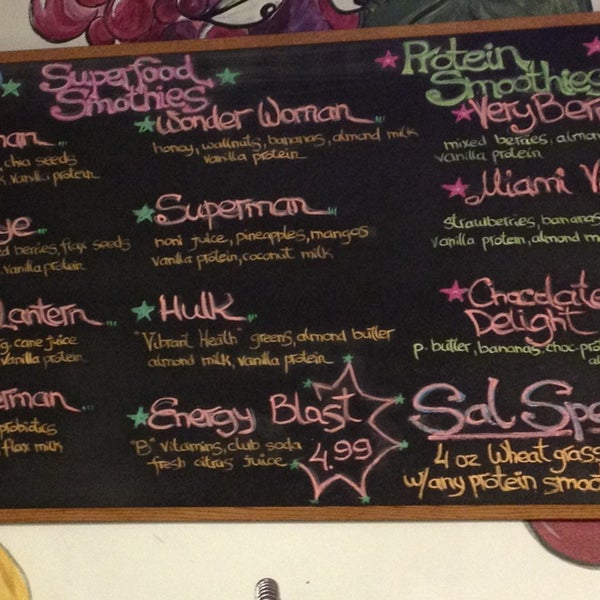 Superfood
Smothies
man...
, chia seeds
vanilla protein
ye...
ed berries, flax seeds
vanilla protein
Lantern...
g, cane juice
vanilla protein
erman...
probiotics
flax milk
Wonder Woman...
honey, wallnuts, bananas, almond milk
vanilla protein
Superman...
noni juice, pineapples, mangos
vanilla protein, coconut milk
Hulk...
"Vibrant Health" greens, almond butter
almond milk, vanilla protein
Energy Blast
"B" vitamins, club soda
fresh citrus juice
4.99
Protein
Smoothies
Very Berr
mixed berries, almon
vanilla protein
Miami V
strawberries, bananas
vanilla protein, almond m
Chocolate
Delight
p. butter, bananas, choc. pro
al
Sal Spe
4 oz Wheat grass
w/any protein smoo